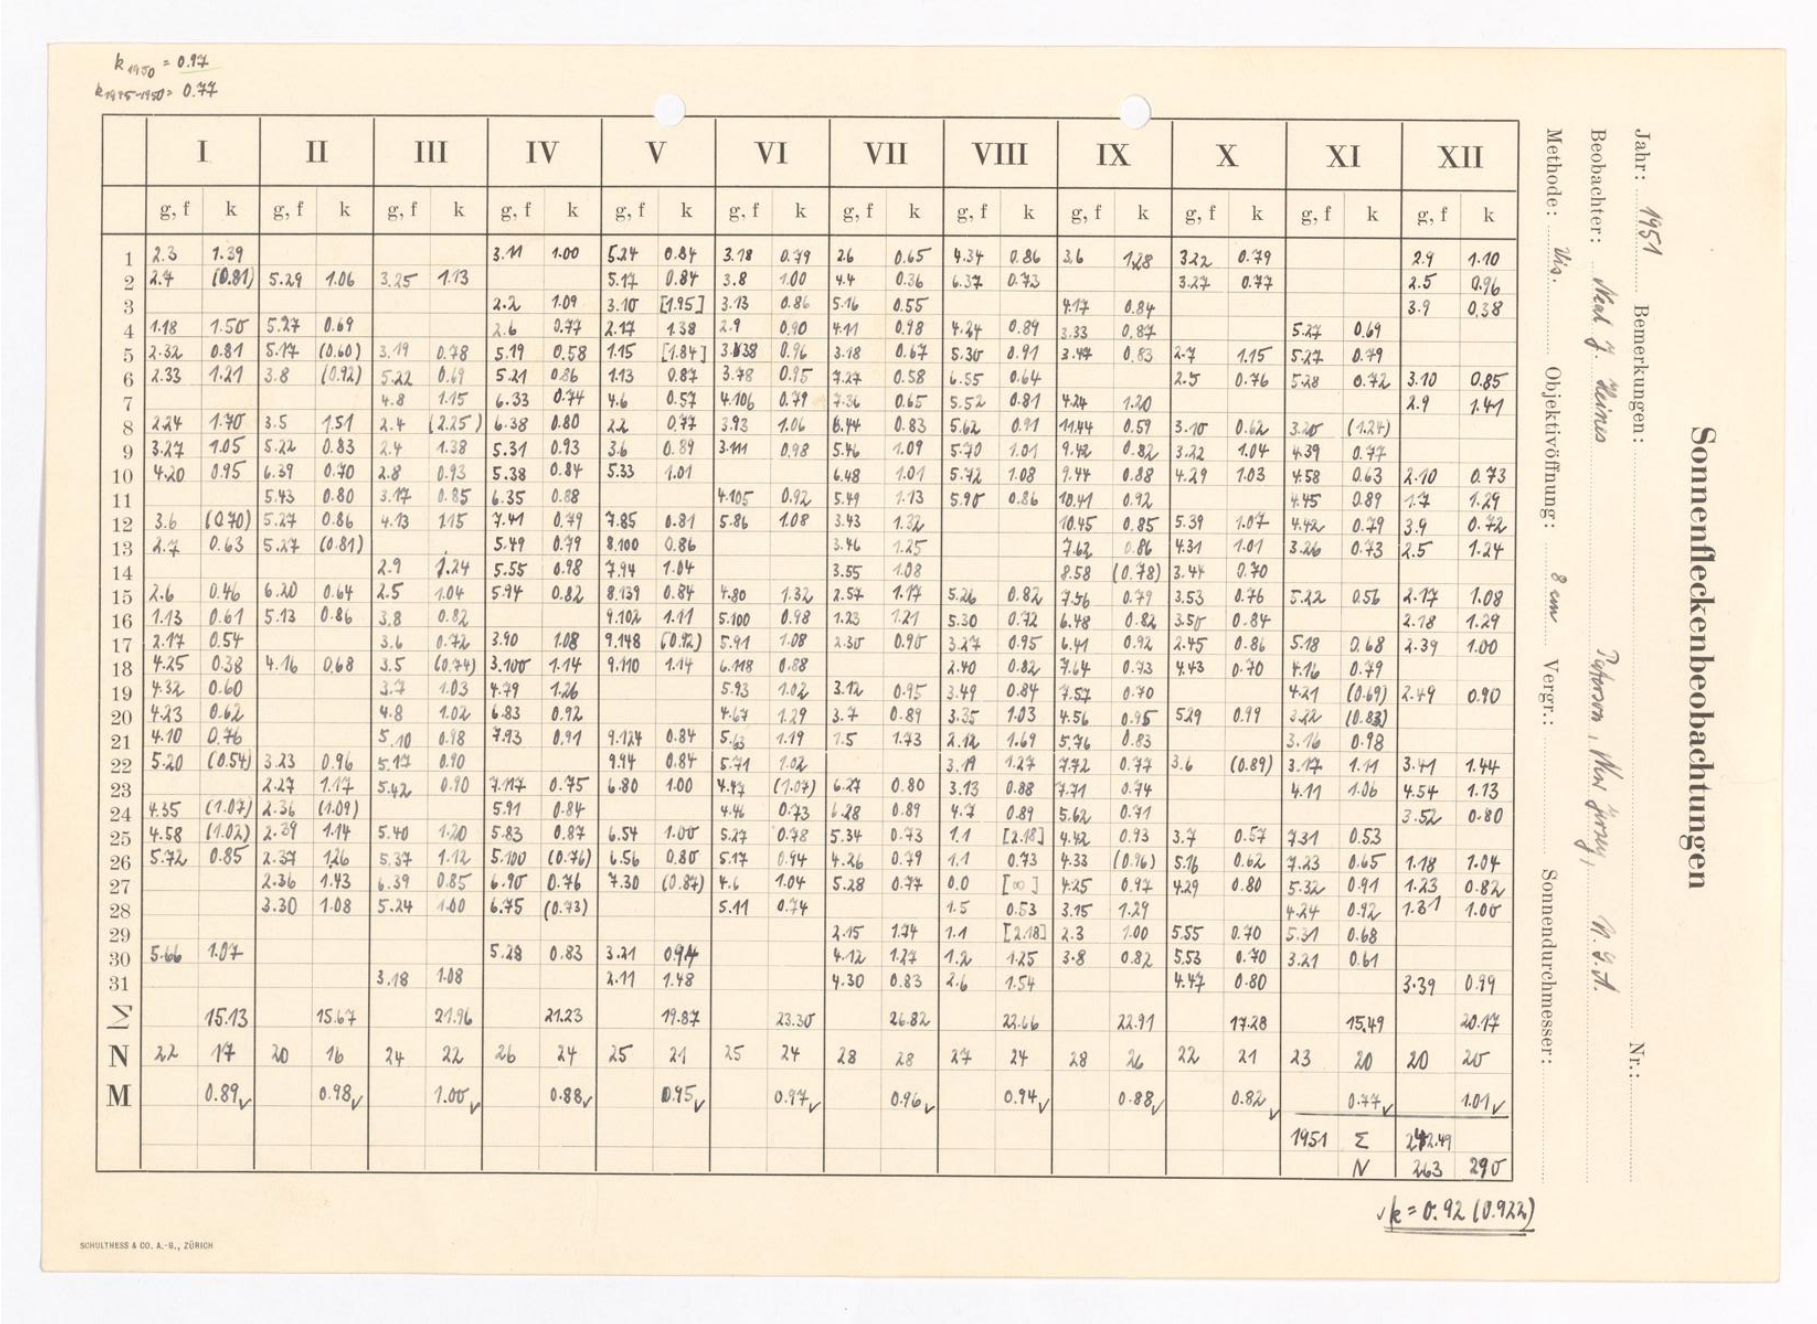 k 1950 = 0.97
k 1945-1950 = 0.77
I II III IV V VI VII VIII IX X XI XII
g, f k g, f k g, f k g, f k g, f k g, f k g, f k g, f k g, f k g, f k g, f k g, f k
1 2.3 1.39 3.11 1.00 5.24 0.84 3.18 0.79 2.6 0.65 4.34 0.86 3.6 1.28 3.22 0.79 2.9 1.10
2 2.7 (0.81) 5.29 1.06 3.25 1.13 5.17 0.84 3.8 1.00 4.4 0.36 6.37 0.73 3.27 0.77 2.5 0.96
3 2.2 1.09 3.10 [1.95] 3.13 0.86 5.16 0.55 4.17 0.84 3.9 0.38
4 1.18 1.50 5.27 0.69 2.6 0.77 2.17 1.38 2.9 0.90 4.11 0.98 4.24 0.89 3.33 0.87 5.27 0.69
5 2.32 0.81 5.17 (0.60) 3.19 0.78 5.19 0.58 1.15 [1.84] 3.38 0.96 3.18 0.67 5.30 0.91 3.47 0.83 2.7 1.15 5.27 0.79
6 2.33 1.21 3.8 (0.92) 5.22 0.69 5.21 0.86 1.13 0.87 3.78 0.95 7.27 0.58 6.55 0.64 2.5 0.76 5.28 0.72 3.10 0.85
7 4.8 1.15 6.33 0.74 4.6 0.57 4.106 0.79 7.36 0.65 5.52 0.81 4.24 1.20 2.9 1.41
8 2.24 1.70 3.5 1.51 2.4 (2.25) 6.38 0.80 2.2 0.77 3.93 1.06 6.44 0.83 5.62 0.91 11.44 0.59 3.10 0.62 3.20 (1.24)
9 3.27 1.05 5.22 0.83 2.4 1.38 5.31 0.93 3.6 0.89 3.111 0.98 5.46 1.09 5.70 1.01 9.42 0.82 3.22 1.04 4.39 0.77
10 4.20 0.95 6.39 0.70 2.8 0.93 5.38 0.84 5.33 1.01 6.48 1.01 5.72 1.08 9.44 0.88 4.29 1.03 4.58 0.63 2.10 0.73
11 5.43 0.80 3.17 0.85 6.35 0.88 4.105 0.92 5.49 1.13 5.90 0.86 10.41 0.92 4.45 0.89 1.7 1.29
12 3.6 (0.70) 5.27 0.86 4.13 1.15 7.41 0.79 7.85 0.81 5.86 1.08 3.43 1.32 10.45 0.85 5.39 1.07 4.42 0.79 3.9 0.72
13 2.7 0.63 5.27 (0.81) 5.49 0.79 8.100 0.86 3.46 1.25 7.62 0.86 4.31 1.01 3.26 0.73 2.5 1.24
14 2.9 1.24 5.55 0.98 7.94 1.04 3.55 1.08 8.58 (0.78) 3.44 0.70
15 2.6 0.46 6.20 0.64 2.5 1.04 5.94 0.82 8.139 0.84 4.80 1.32 2.57 1.17 5.26 0.82 7.56 0.79 3.53 0.76 5.22 0.56 2.17 1.08
16 1.13 0.61 5.13 0.86 3.8 0.82 9.102 1.11 5.100 0.98 1.23 1.21 5.30 0.72 6.48 0.82 3.50 0.84 2.18 1.29
17 2.17 0.54 3.6 0.72 3.90 1.08 9.148 (0.92) 5.91 1.08 2.30 0.90 3.27 0.95 6.41 0.92 2.45 0.86 5.18 0.68 2.39 1.00
18 4.25 0.38 4.16 0.68 3.5 (0.74) 3.100 1.14 9.110 1.14 6.118 0.88 2.40 0.82 7.64 0.73 4.43 0.70 4.16 0.79
19 4.32 0.60 3.7 1.03 4.79 1.26 5.93 1.02 3.12 0.95 3.49 0.84 7.57 0.70 4.21 (0.69) 2.49 0.90
20 4.23 0.62 4.8 1.02 6.83 0.92 4.67 1.29 3.7 0.89 3.35 1.03 4.56 0.95 5.29 0.99 3.22 (0.83)
21 4.10 0.76 5.10 0.98 7.93 0.91 9.124 0.84 5.63 1.19 1.5 1.73 2.12 1.69 5.76 0.83 3.16 0.98
22 5.20 (0.54) 3.23 0.96 5.17 0.90 9.94 0.84 5.71 1.02 3.19 1.27 7.72 0.77 3.6 (0.89) 3.17 1.11 3.41 1.44
23 2.27 1.17 5.42 0.90 7.117 0.75 6.80 1.00 4.47 (1.07) 6.27 0.80 3.13 0.88 7.71 0.74 4.11 1.06 4.54 1.13
24 4.35 (1.07) 2.36 (1.09) 5.91 0.84 4.46 0.73 6.28 0.89 4.7 0.89 5.62 0.71 3.52 0.80
25 4.58 (1.02) 2.39 1.14 5.40 1.20 5.83 0.87 6.54 1.00 5.27 0.78 5.34 0.73 1.1 [2.18] 4.42 0.93 3.7 0.57 7.31 0.53
26 5.72 0.85 2.37 1.26 5.37 1.12 5.100 (0.76) 6.56 0.80 5.17 0.94 4.26 0.79 1.1 0.73 4.33 (0.96) 5.16 0.62 7.23 0.65 1.18 1.04
27 2.36 1.43 6.39 0.85 6.90 0.76 7.30 (0.87) 4.6 1.04 5.28 0.77 0.0 [∞] 4.25 0.97 4.29 0.80 5.32 0.91 1.23 0.82
28 3.30 1.08 5.24 1.00 6.75 (0.73) 5.11 0.74 1.5 0.53 3.15 1.29 4.24 0.92 1.31 1.00
29 2.15 1.74 1.1 [2.18] 2.3 1.00 5.55 0.70 5.31 0.68
30 5.66 1.07 5.28 0.83 3.21 0.94 4.12 1.27 1.2 1.25 3.8 0.82 5.53 0.70 3.21 0.61
31 3.18 1.08 2.11 1.48 4.30 0.83 2.6 1.54 4.47 0.80 3.39 0.99
Σ 15.13 15.67 21.96 21.23 19.87 23.30 26.82 22.66 22.91 17.28 15.49 20.17
N 22 17 20 16 24 22 26 24 25 21 25 24 28 28 27 24 28 26 22 21 23 20 20 20
M 0.89✓ 0.98✓ 1.00✓ 0.88✓ 0.95✓ 0.97✓ 0.96✓ 0.94✓ 0.88✓ 0.82✓ 0.77✓ 1.01✓
1951 Σ 242.49
N 263 290
✓k = 0.92 (0.922)
SCHULTHESS & CO. A.-G., ZÜRICH
Sonnenfleckenbeobachtungen
Jahr: 1951 Bemerkungen: Nr.:
Beobachter: Neal J. Heines Paterson, New Jersey, U.S.A.
Methode: Vis. Objektivöffnung: 8 cm Vergr.: Sonnendurchmesser: